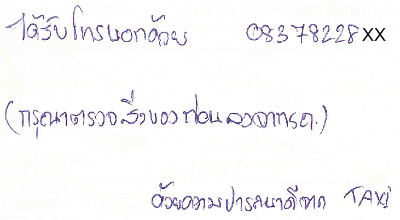 ได้รับโทรบอกด้วย 08378228XX
(กรุณาตรวจสิ่งของก่อนลงจากรถ.)
ด้วยความปรารถนาดีจาก TAXi